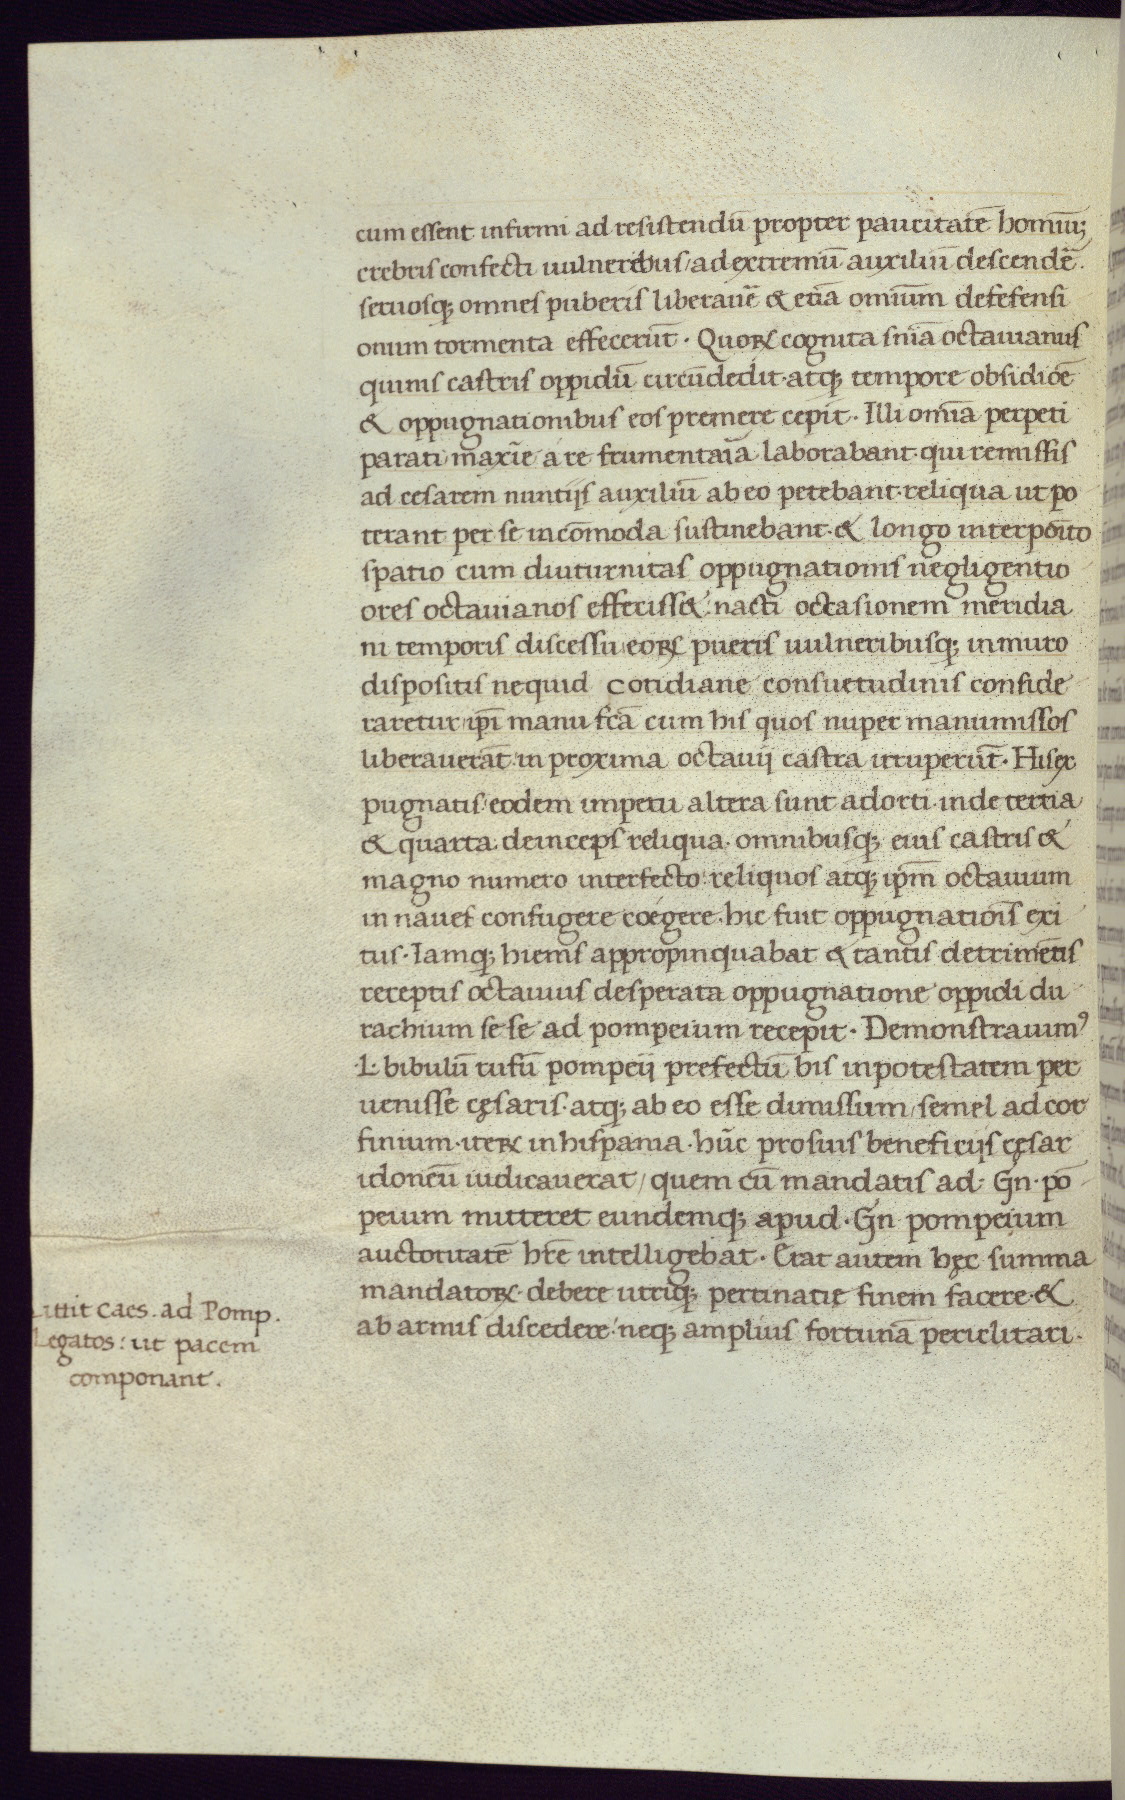 cum essent infirmi ad resistendū propter paucitatē homiuȝ;
crebris confecti uulneribus/ad extremū auxiliū descendē̄.
seruosq; omnes puberis liberauē̄ & etiā omiūm defefensi
onum tormenta effecerūt. Quoꝝ cognita sniā octauianus
quinis castris oppidū circūdedit.atq; tempore obsidiōe
& oppugnationibus eos premere cepit. Illi omīa perpeti
parati maxīe a re frumentaīa laborabant.qui remissis
ad cesarem nuntijs auxiliū ab eo petebant.reliqua ut po
terant per se incōmoda sustinebant.& longo interpoīto
spatio cum diuturnitas oppugnationis negligentio
ores octauianos efferiss& nacti occasionem meridia
ni temporis discessu eoꝝ pueris uulneribusq; in muro
dispositis nequid cotidiane consuetudinis conside
raretur ip̄i manu fcā cum his quos nuper manumissos
liberauerāt in proxima octauij castra irruperūt. His ex
pugnatis eodem impetu altera sunt adorti.inde tertia
& quarta deinceps reliqua.omnibusq; eius castris &
magno numero interfecto reliquos atq; ip̄m octauium
in naues confugere coegere.hic fuit oppugnatioīs exi
tus. Iamq; hiems appropinquabat & tantis detrimētis
receptis octauius desperata oppugnatione oppidi du
rachium se se ad pompeium recepit. Demonstrauimꝰ
L. bibulū rufū pompeij prefectū bis in potestatem per
uenisse cęsaris.atq; ab eo esse dimissum/semel ad cor
finium.iteꝝ in hispania.hūc pro suis beneficijs cęsar
idoneū iudicauerat/quem cū mandatis ad. Gn. pō
peium mitteret eundemq; apud. Gn pompeium
auctoritatē hr̄e intelligebat. Erat autem hęc summa
mandatoꝝ.debere utrūq; pertinatię finem facere.&
ab armis discedere.neq; amplius fortunā periclitari.
Mittit Caes. ad Pomp.
Legatos: ut pacem
componant.